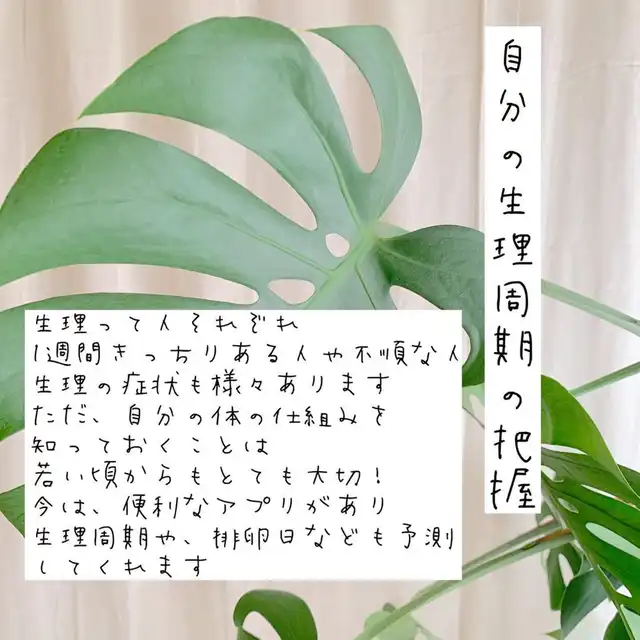 自分の生理周期の把握
生理って人それぞれ
1週間きっちりある人や不順な人
生理の症状も様々あります
ただ、自分の体の仕組みを
知っておくことは
若い頃からもとても大切!
今は、便利なアプリがあり
生理周期や、排卵日なども予測
してくれます